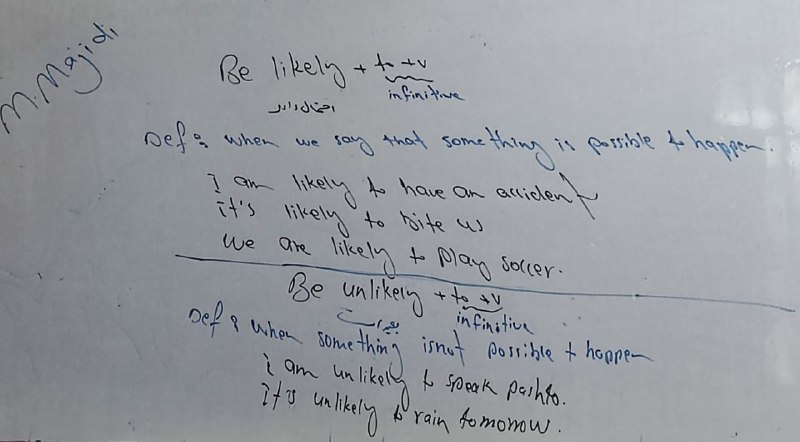 M. Majidi
Be likely + to +v
infinitive
احتمال دارد
Def: when we say that something is possible to happen.
I am likely to have an accident
it's likely to bite us
we are likely to play soccer.
Be unlikely + to +v
infinitive
Def: when something isnot possible to happen
I am unlikely to speak pashto.
It's unlikely to rain tomorrow.